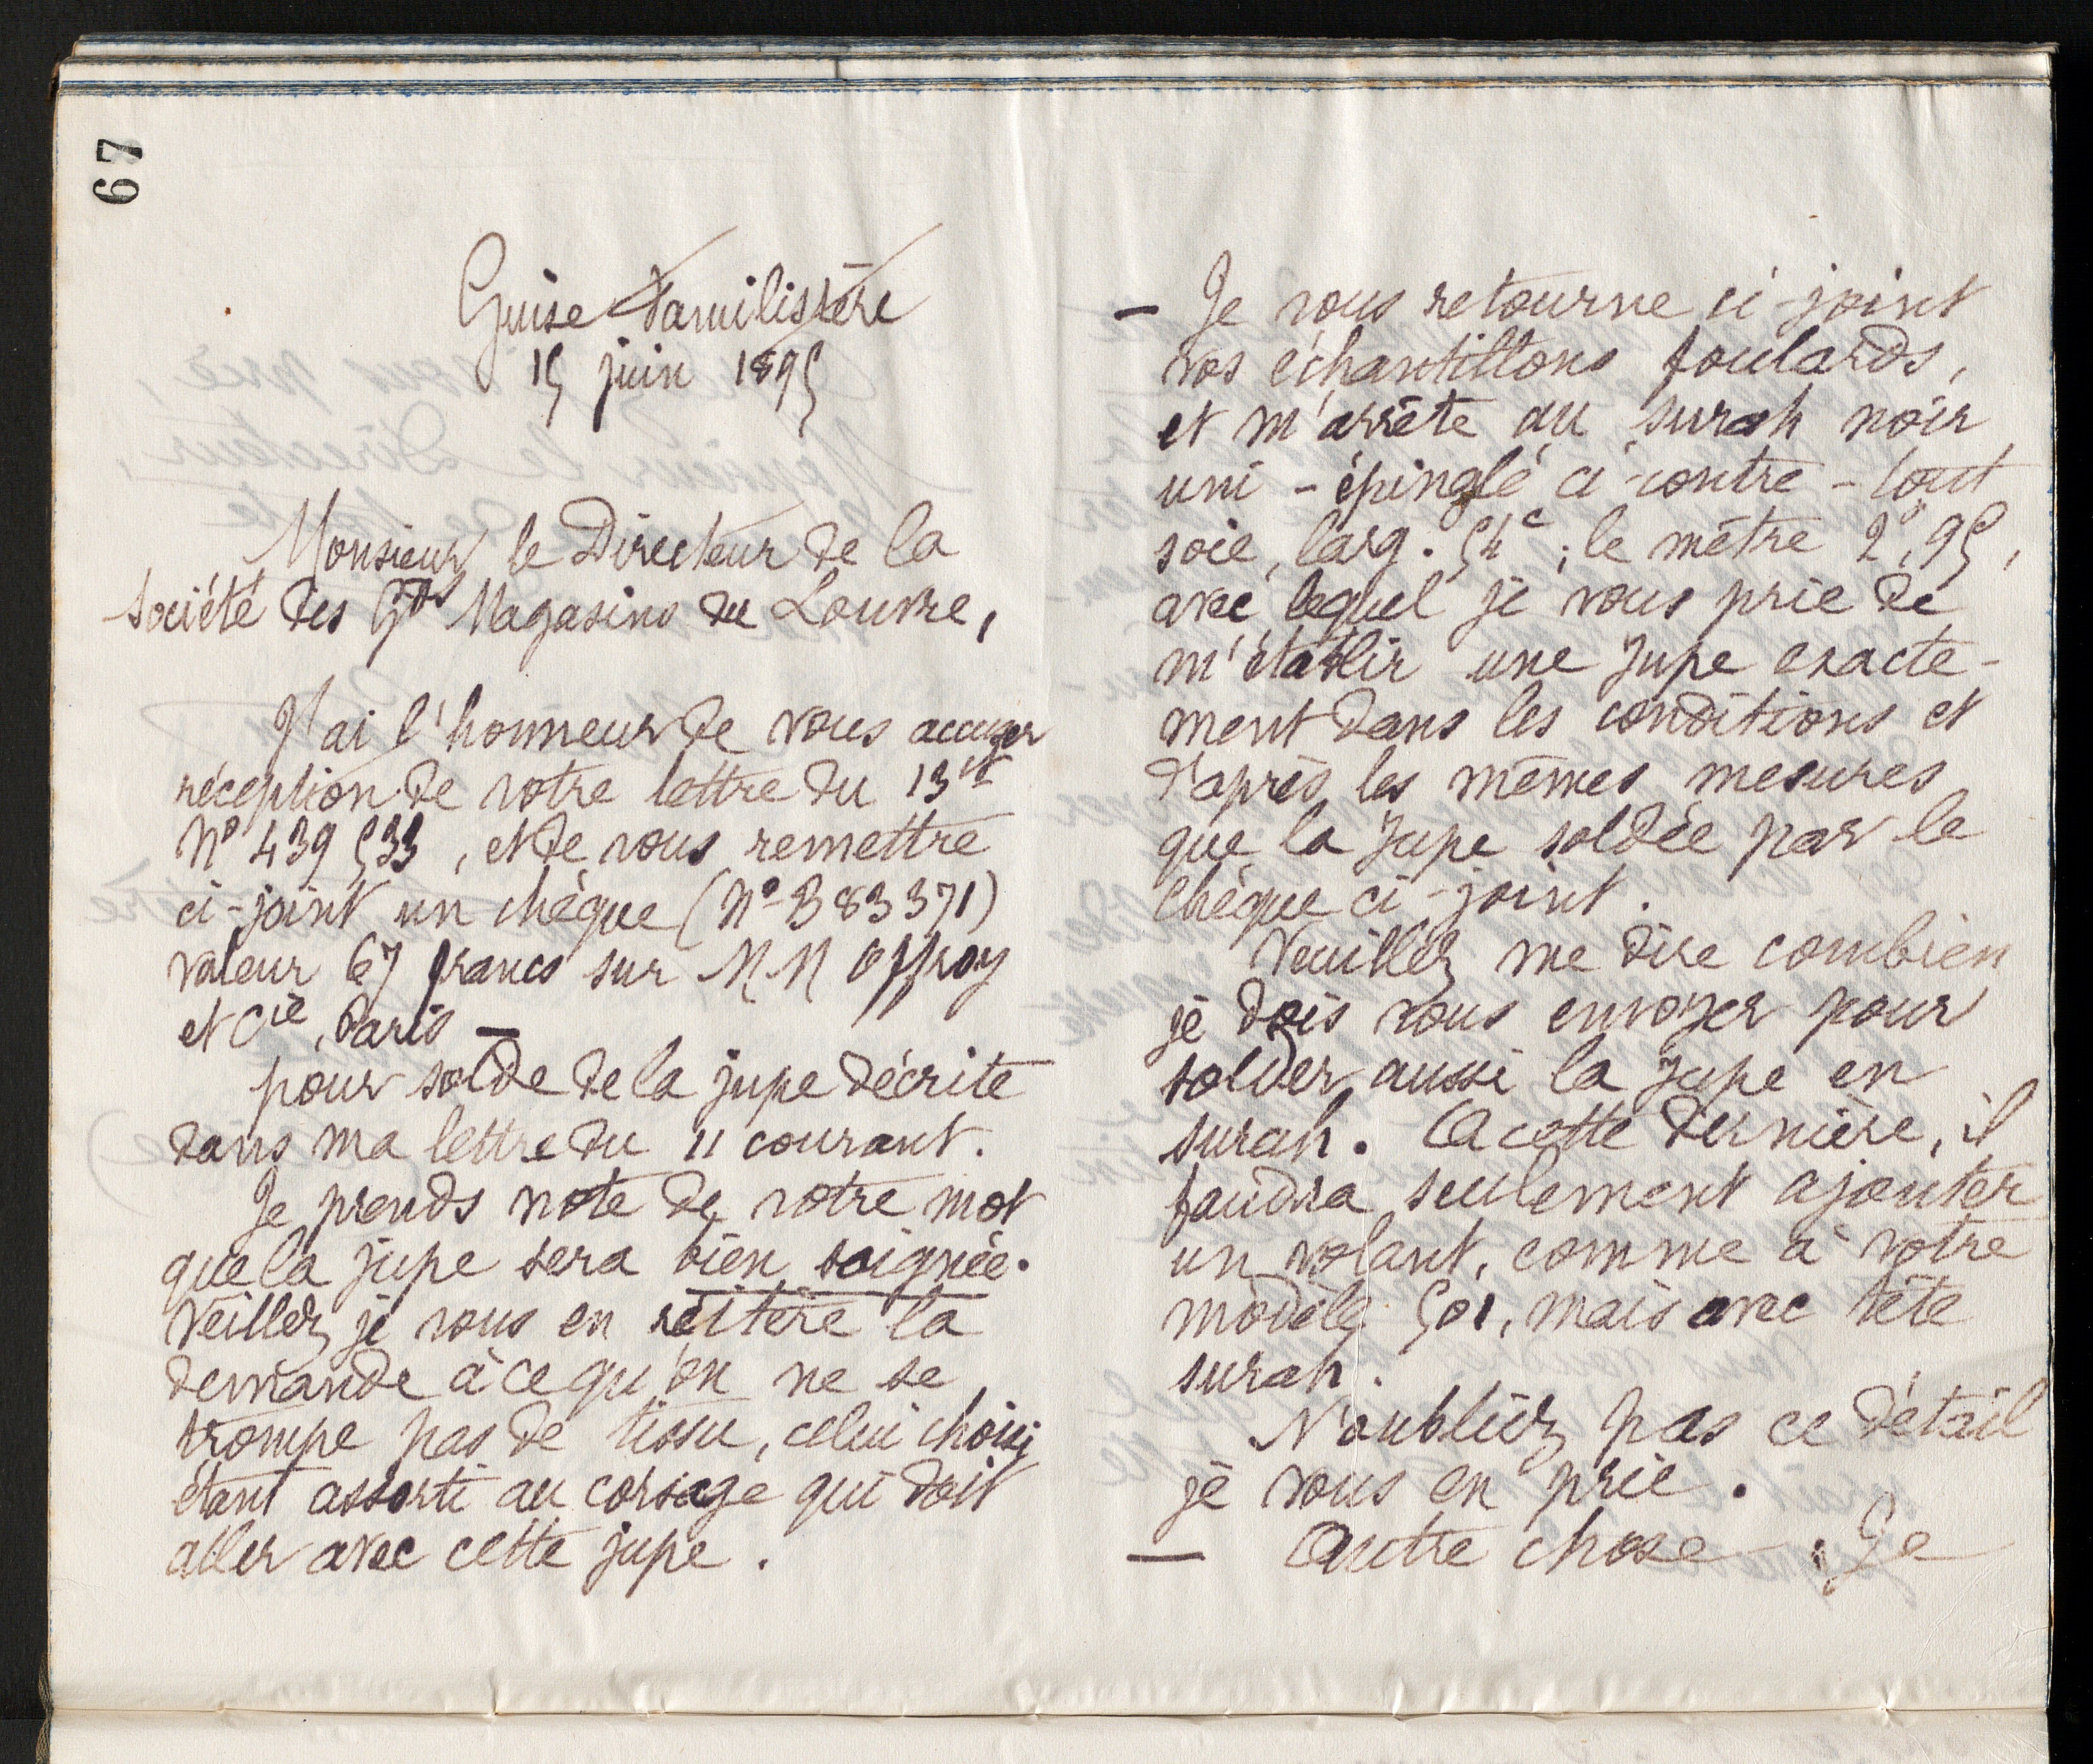 67
Guise Familistère
15 juin 1895
Monsieur le Directeur de la
Société des Gds Magasins du Louvre,
J'ai l'honneur de vous accuser
réception de votre lettre du 13 ct
No 439 533, et de vous remettre
ci-joint un chèque (No B 83 371)
valeur 67 francs sur MM Offroy
et Cie, Paris —
pour solde de la jupe décrite
dans ma lettre du 11 courant.
Je prends note de votre mot
que la jupe sera bien soignée.
Veillez je vous en réitère la
demande à ce qu'on ne se
trompe pas de tissu, celui choisi
étant assorti au corsage qui doit
aller avec cette jupe.
— Je vous retourne ci-joint
vos échantillons foulards,
et m'arrête au surah noir
uni - épinglé ci-contre - tout
soie, larg. 54c; le mètre 2f,95,
avec lequel je vous prie de
m'établir une jupe exacte-
ment dans les conditions et
d'après les mêmes mesures
que la jupe soldée par le
chèque ci-joint.
Veuillez me dire combien
je dois vous envoyer pour
solder aussi la jupe en
surah. A cette dernière, il
faudra seulement ajouter
un volant, comme à votre
modèle 501, mais avec tête
surah.
N'oubliez pas ce détail
je vous en prie.
— Autre chose. Je